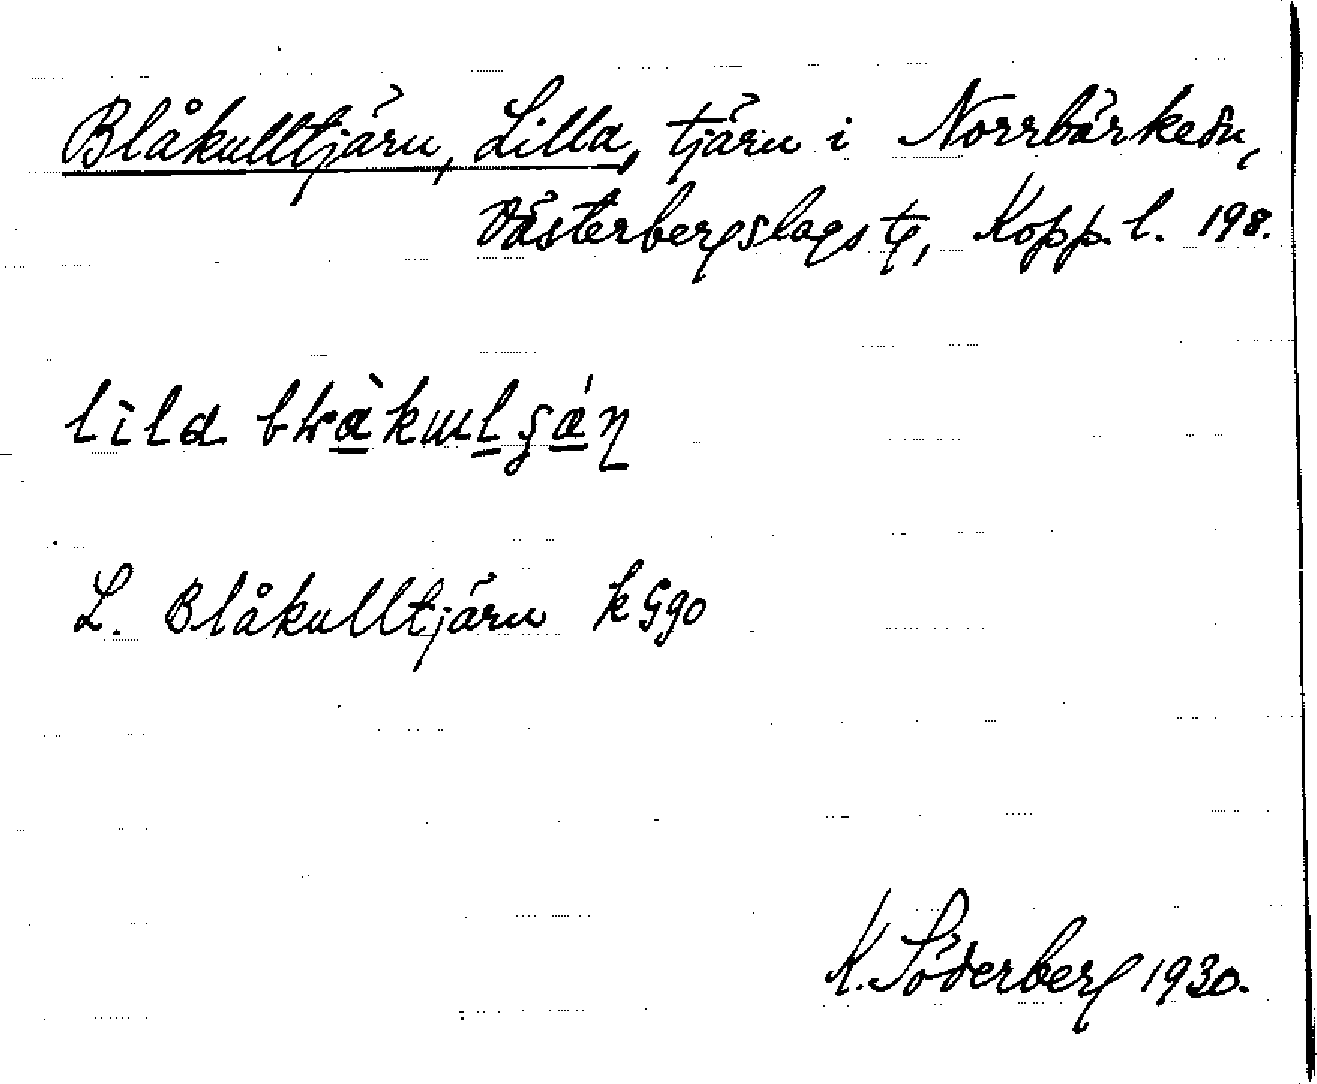 Blåkulltjärn, Lilla, tjärn i Norrbärke sn,
Västerbergslags tg, Kopp. l. 198.
L. Blåkulltjärn k G90
K. Söderberg 1930.